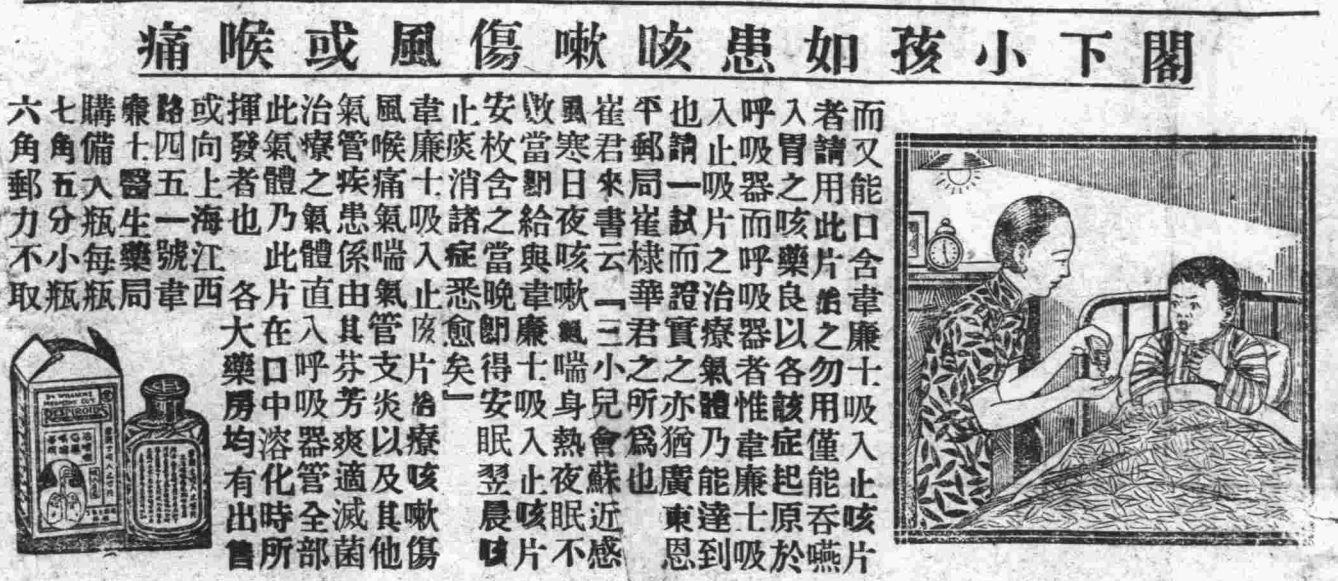 閣下小孩如患咳嗽傷風或喉痛
而又能口含韋廉士吸入止咳片
者請用此片治之勿用僅能吞嚥
入胃之咳藥良以各該症起原於
呼吸器而呼吸器者惟韋廉士吸
入止吸片之治療氣體乃能達到
也請一試而證實之亦猶廣東恩
平郵局崔棣華君之所為也
崔君來書云『三小兒會蘇近感
風寒日夜咳嗽氣喘身熱夜眠不
數當即給與韋廉士吸入止咳片
安枚含之當晚即得安眠翌晨咳
止痰消諸症悉愈矣』
韋廉士吸入止咳片治療咳嗽傷
風喉痛氣喘氣管支炎以及其他
氣管疾患係由其芬芳爽適滅菌
治療之氣體直入呼吸器管全部
此氣體乃此片在口中溶化時所
揮發者也 各大藥房均有出售
或向上海江西
路四五一號韋
廉士醫生藥局
購備入瓶每瓶
七角五分小瓶
六角郵力不取
DR. WILLIAMS